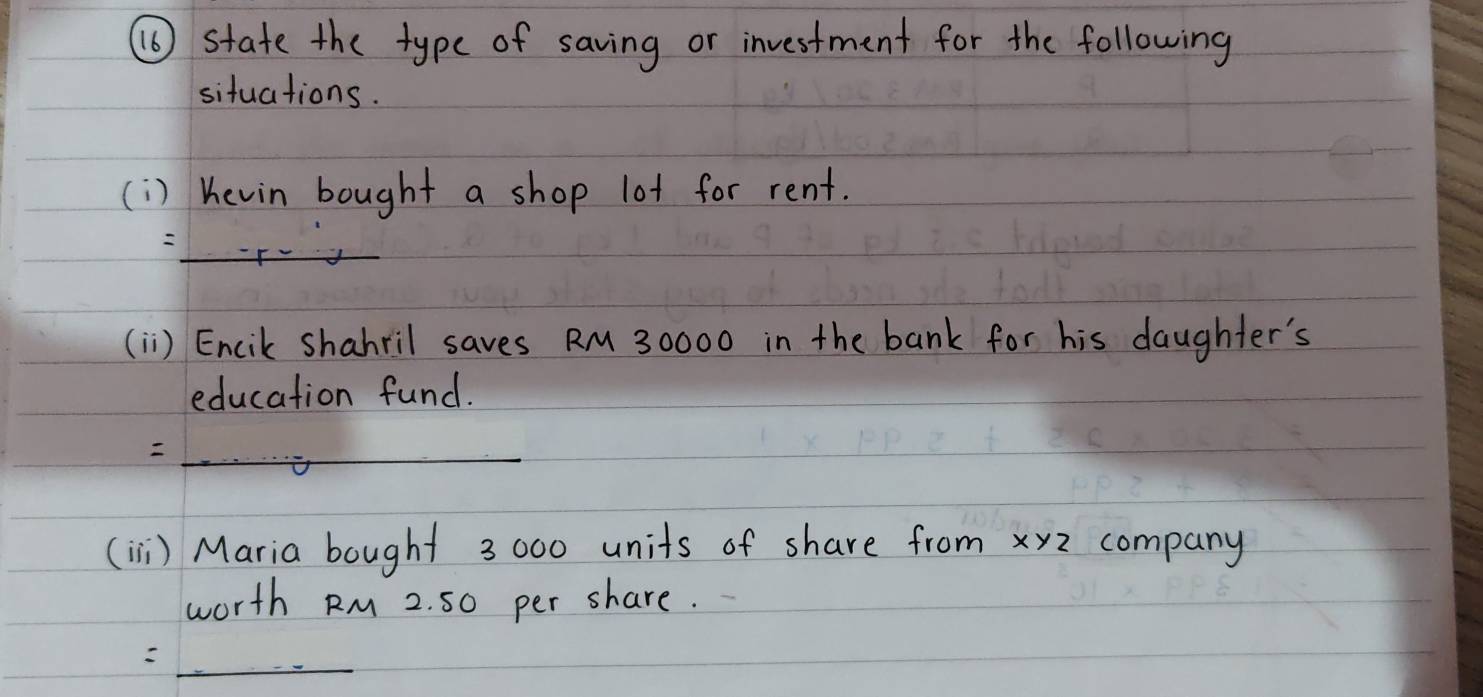 16 state the type of saving or investment for the following
situations.
(i) Kevin bought a shop lot for rent.
=
(ii) Encik Shahril saves RM 30000 in the bank for his daughter's
education fund.
=
(iii) Maria bought 3 000 units of share from xyz company
worth RM 2.50 per share.
=